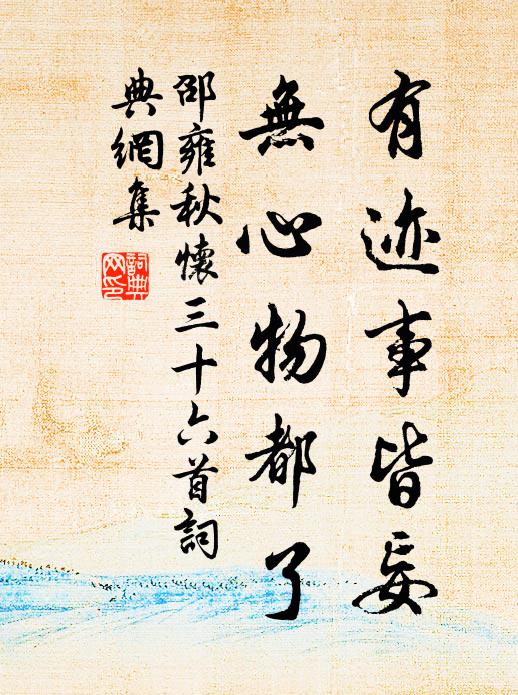 有迹事皆妄
無心物都了
邵雍秋懷三十六首詞
典網集
詞典網印